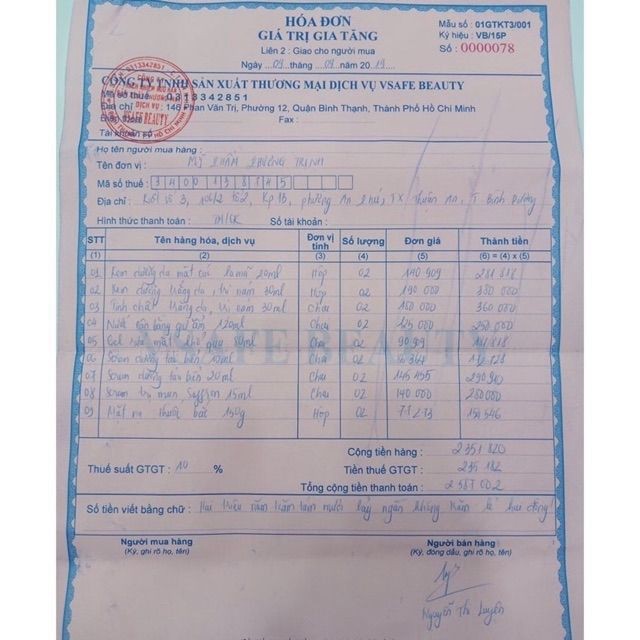 HÓA ĐƠN
GIÁ TRỊ GIA TĂNG
Liên 2 : Giao cho người mua
Ngày 09 tháng 09 năm 2019
Mẫu số : 01GTKT3/001
Ký hiệu : VB/15P
Số : 0000078
CÔNG TY TNHH SẢN XUẤT THƯƠNG MẠI DỊCH VỤ VSAFE BEAUTY
Mã số thuế : 0313342851
Địa chỉ : 146 Phan Văn Trị, Phường 12, Quận Bình Thạnh, Thành Phố Hồ Chí Minh
Điện thoại : Fax :
Tài khoản số :
Họ tên người mua hàng :
Tên đơn vị : Mỹ phẩm Phương Trinh
Mã số thuế :
Địa chỉ : phường An Phú, TX Thuận An, T Bình Dương
Hình thức thanh toán : TM/CK Số tài khoản :
STT Tên hàng hóa, dịch vụ Đơn vị tính Số lượng Đơn giá Thành tiền
(1) (2) (3) (4) (5) (6) = (4) x (5)
01 Kem dưỡng da mặt 20ml Hộp 02 140 909 281 818
02 Kem dưỡng trắng da, trị nám 30ml Hộp 02 190 000 380 000
03 Tinh chất trắng da, trị nám 30ml Chai 02 180 000 360 000
04 Nước 120ml Chai 02 125 000 250 000
05 Gel Chai 02 90 909 181 818
06 Serum dưỡng tảo biển 10ml Chai 02
07 Serum dưỡng tảo biển 20ml Chai 02 145 455 290 910
08 Serum trị mụn Saffron 15ml Chai 02 140 000 280 000
09 Mặt nạ thuốc bắc 150g Hộp 02 77 273 154 546
VSAFE BEAUTY
Cộng tiền hàng : 2 351 820
Thuế suất GTGT : 10 % Tiền thuế GTGT : 235 182
Tổng cộng tiền thanh toán : 2 587 002
Số tiền viết bằng chữ : Hai triệu năm trăm tám mươi bảy ngàn không trăm lẻ hai đồng
Người mua hàng Người bán hàng
(Ký, ghi rõ họ, tên) (Ký, đóng dấu, ghi rõ họ, tên)
Nguyễn Thị Luyến